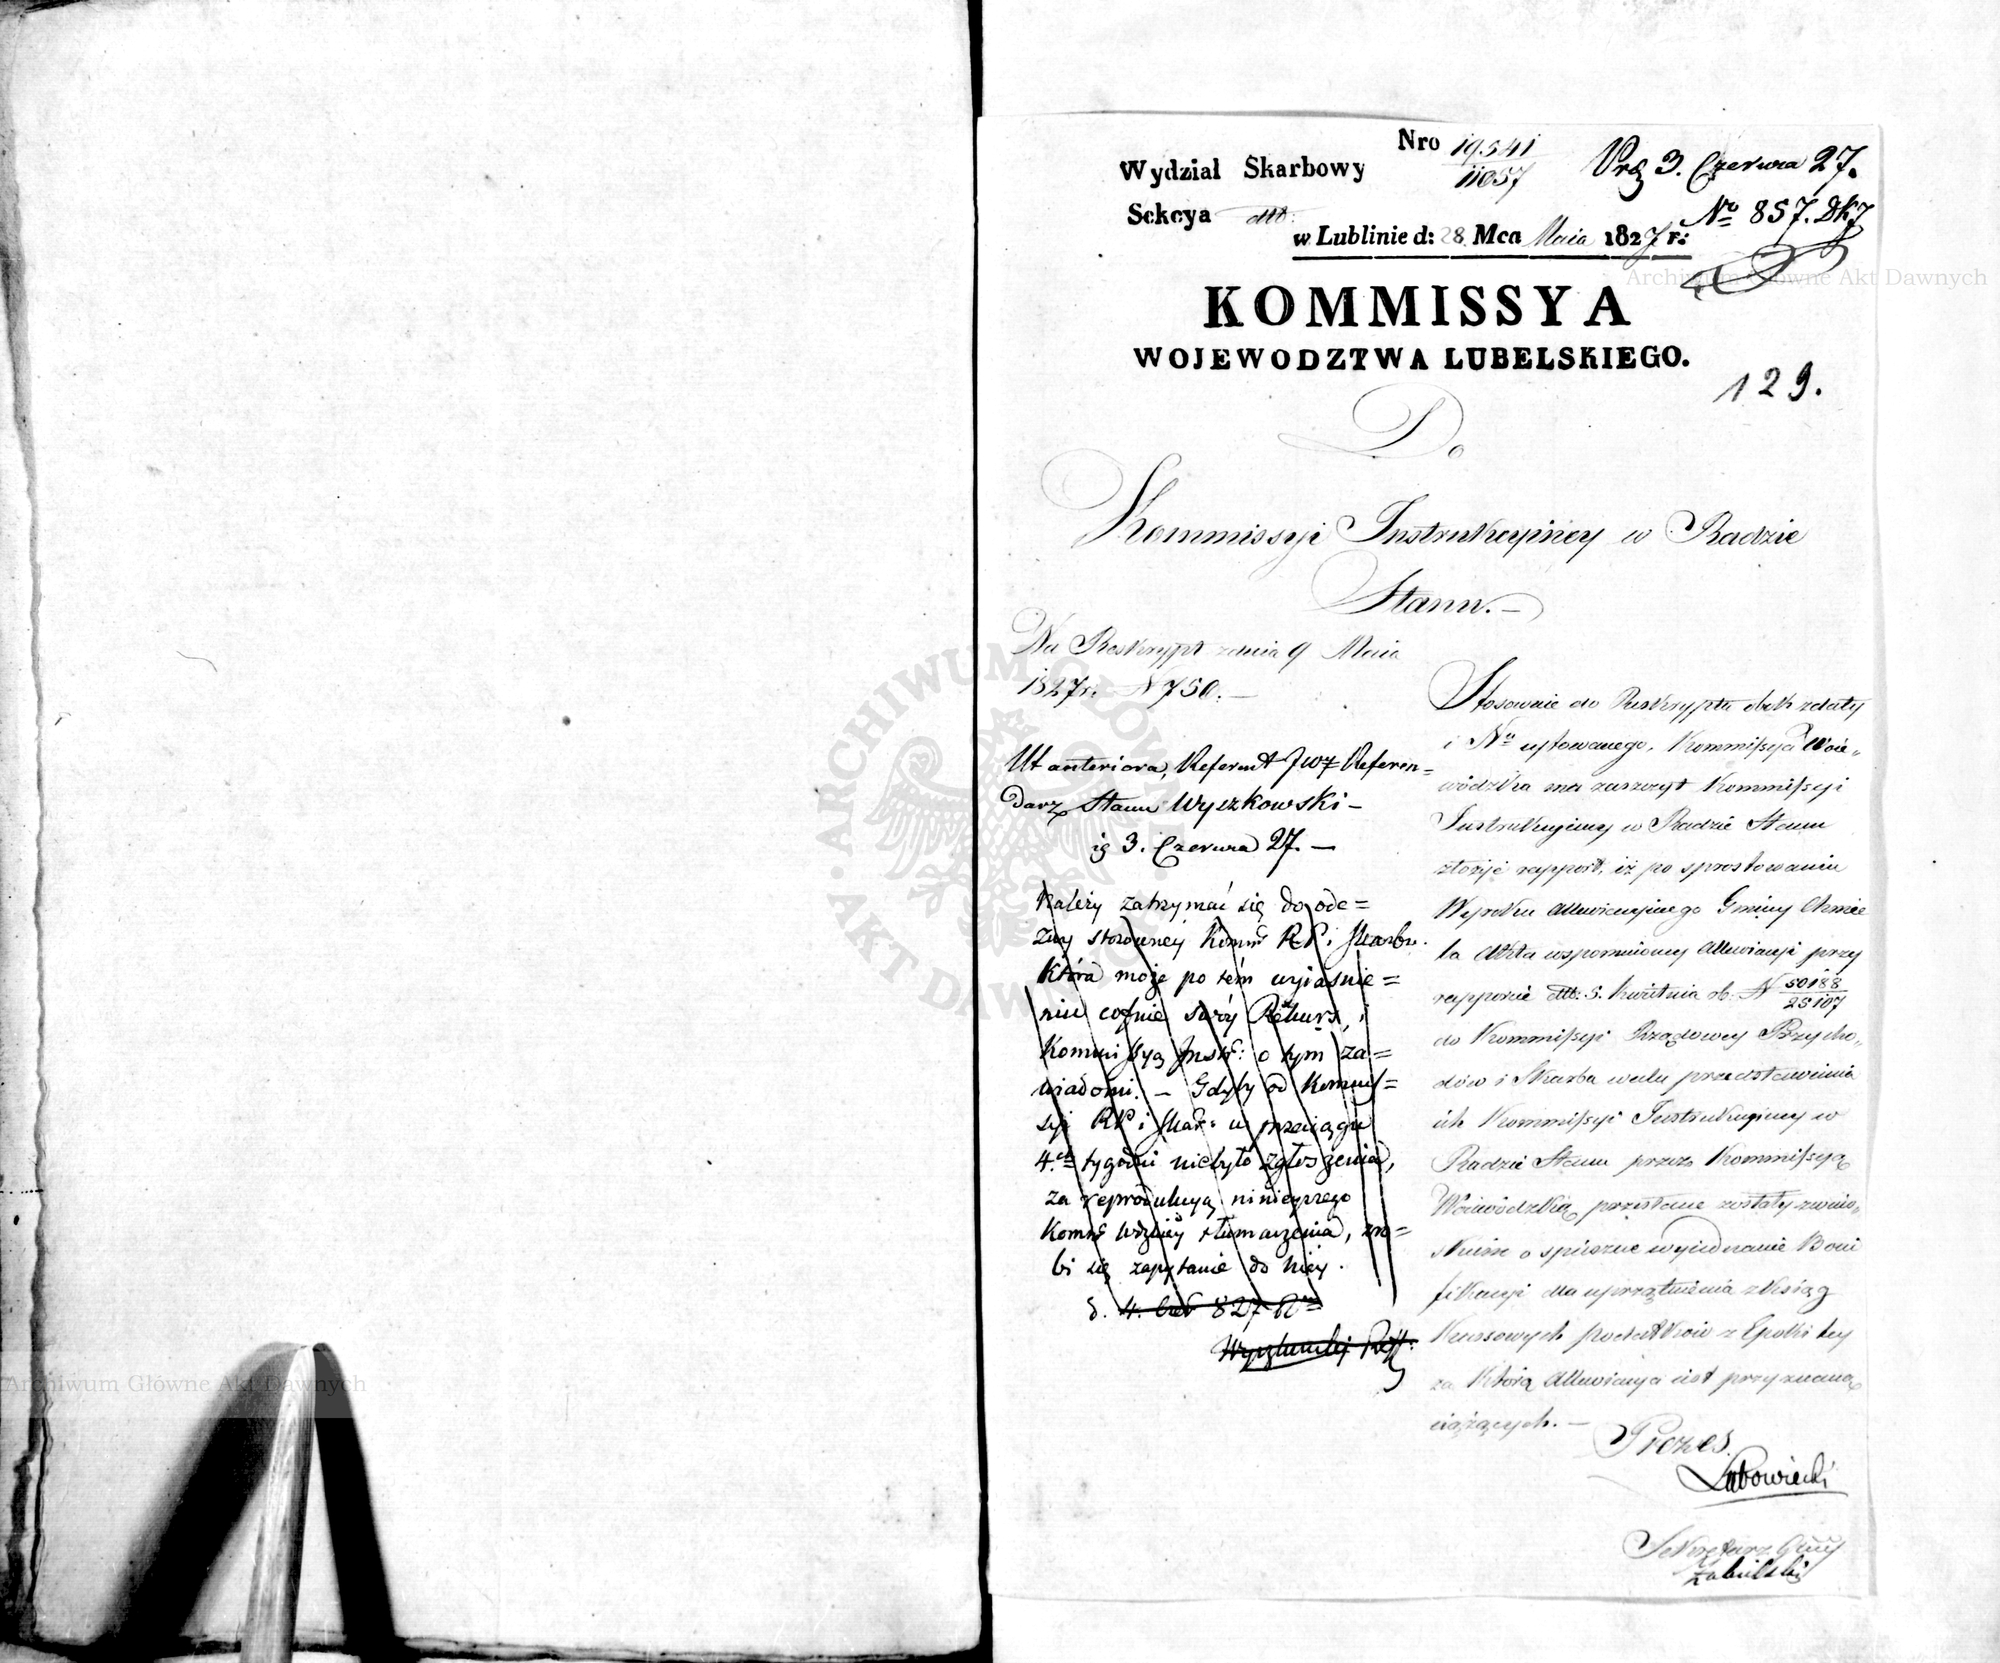 Nro 19541
11057
Wydział Skarbowy
Sekcya dtto:
Prz 3. Czerwca 27.
No 857. DKJ
w Lublinie d: 28 Mca Maia 1827 r:
KOMMISSYA
WOJEWODZTWA LUBELSKIEGO.
129.
Do
Kommissyi Instrukcyiney w Radzie
Stanu. —
Na Reskrypt zdnia 9 Maia
1827 r. N 750. —
Ut anteriora, Referent JWJ Referen=
darz Stanu Wyczkowski —
3. Czerwca 27. —
Należy zatrzymać się do ode=
zwy stosowney Komm RP i Skarbu.
która może po tém wyiaśnie=
niu cofnie swóy Rekurs, i
Kommissyą Instr: o tym za=
wiadomi. — Gdyby od Kommis=
syi RP i Skar: w przeciągu
4.ch tygodni niebyło zgłoszenia,
za reprodukcyą ninieyszego
Komm Wdzkiey tłumaczenia, zro=
bi się zapytanie do niey.
d. 4. Czer 827 R
Wyczkowski Ref:
Stosownie do Reskryptu obok zdaty
i No cytowanego, Kommissya Woie„
wódzka ma zaszczyt Kommissyi
Instrukcyiney w Radzie Stanu
złożyć rapport, iż po sprostowaniu
Wyroku Alleviacyinego Gminy Chmie
la Akta wspomnioney Alleviacyi przy
rapporcie dtto: 5. Kwietnia rb. N 50188
25107
do Kommissyi Rządowey Przycho„
dów i Skarbu welu przedstawienia
ich Kommissyi Instrukcyiney w
Radzie Stanu przez Kommissyą
Woiewódzką przesłane zostały zwnio„
skiem o spieszne wyiednanie Boni
fikacyi dla uprzątnienia z Ksiąg
Kassowych podatków z Epoki tey
za którą Alleviacya iest przyznaną
ciążących. —
Prezes
Lubowiecki
Sekretarz Gnny
Archiwum Główne Akt Dawnych
Archiwum Główne Akt Dawnych
ARCHIWUM GŁÓWNE AKT DAWNYCH